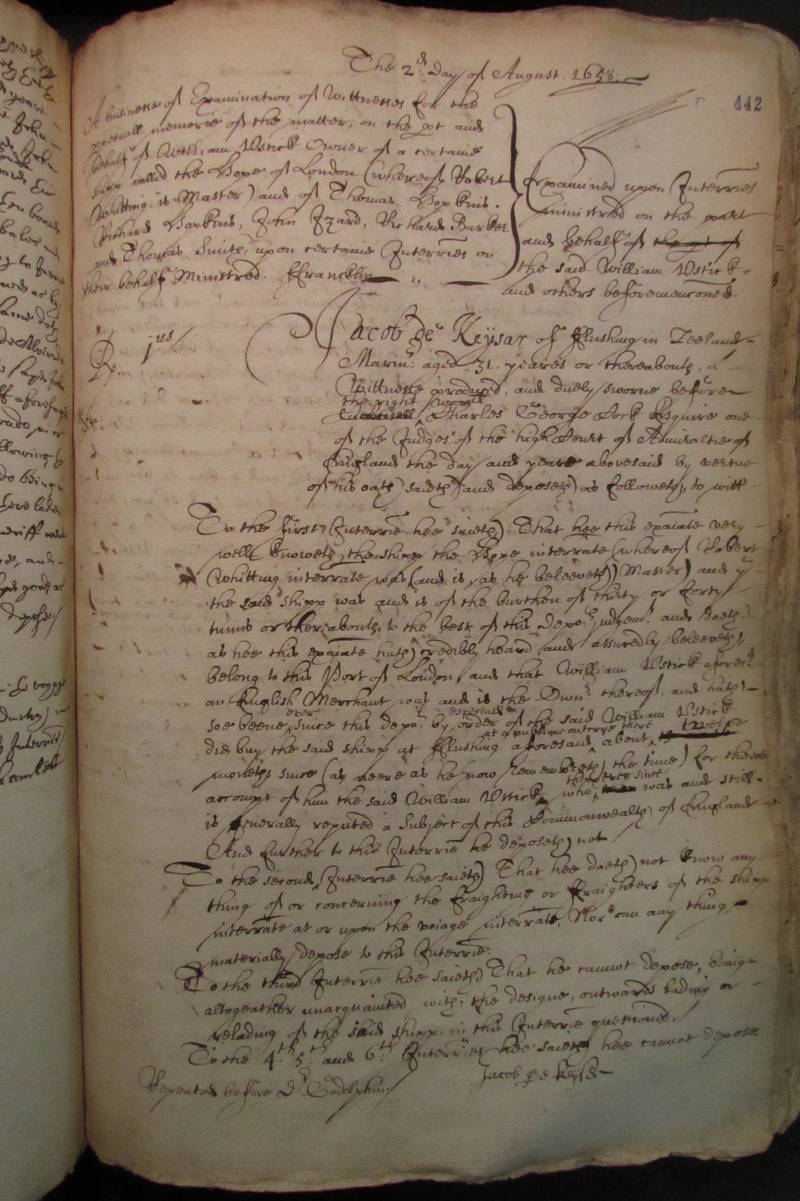 The 2d. day of August. 1658.
442
A business of Examination of Wittnesses for the
perpetuall memorie of the matter, on the pt and
behalfe of William Ustick Owner of a certaine
shipp called the Hope of London (whereof Robert
Whitting is Master) and of Thomas Hopkins.
Richard Hopkins, John Izard, Richard Barker
and Thomas Smith, upon certaine Interries on
their behalfe Ministred. Ffrancklin
Examined upon Interries
ministred on the part
and behalfe of the pt of
the said William Ustick
and others beforemenconed.
Rp. jus
Jacob de Keysar of Fflushing in Zeeland
Marinr. aged 31. yeares or thereabouts, a
Wittnesse produced, and duely sworne before
the right worpll
Charles George Cock Esquire one
of the Judges of the high Court of Admiraltie of
England the day and yeare abovesaid by vertue
of his oath saieth and deposeth as followeth, to witt
To the first Interrie hee saieth That hee this exaiate very
well knoweth the shipp the Hope interrate (whereof Robert
Whitting interrate was (and is as he beleeveth) Master) and yt
the said shipp was and is of the burthen of thirty or forty
tunns or thereabouts, to the best of this depots Judgemt. and doeth
as hee this exaiate hath credibly heard and assuredly beleeveth,
belong to this Port of London, and that William Ustick aforesd.
an English Merchant was and is the Ownr. thereof, and hath
soe beene ever since this depot. by especiall order of the said William Ustick
did buy the said shipp at Fflushing aforesaid at a publique outcrye there about twelve
moneths since (as neere as he now remembreth the time) for the
accompt of him the said William Ustick, who then and ever since was and still
is generally reputed a Subject of this Commonwealth of England
And further to this Interrie he deposeth not
To the second Interrie hee saieth That hee doeth not know any
thing of or concerning the fraighting or fraighters of the shipp
interrate at or upon the voiage interrate, Nor can any thing
materially depose to this Interrie.
To the third Interrie hee saieth That he cannot depose, being
altogeather unacquainted with the designe, outwards lading or
relading of the said shipp in this Interrie questioned.
To the 4th 5th and 6th Interries hee saieth hee cannot depose.
Repeated before Dr. Godolphin.
Jacob De Keyser